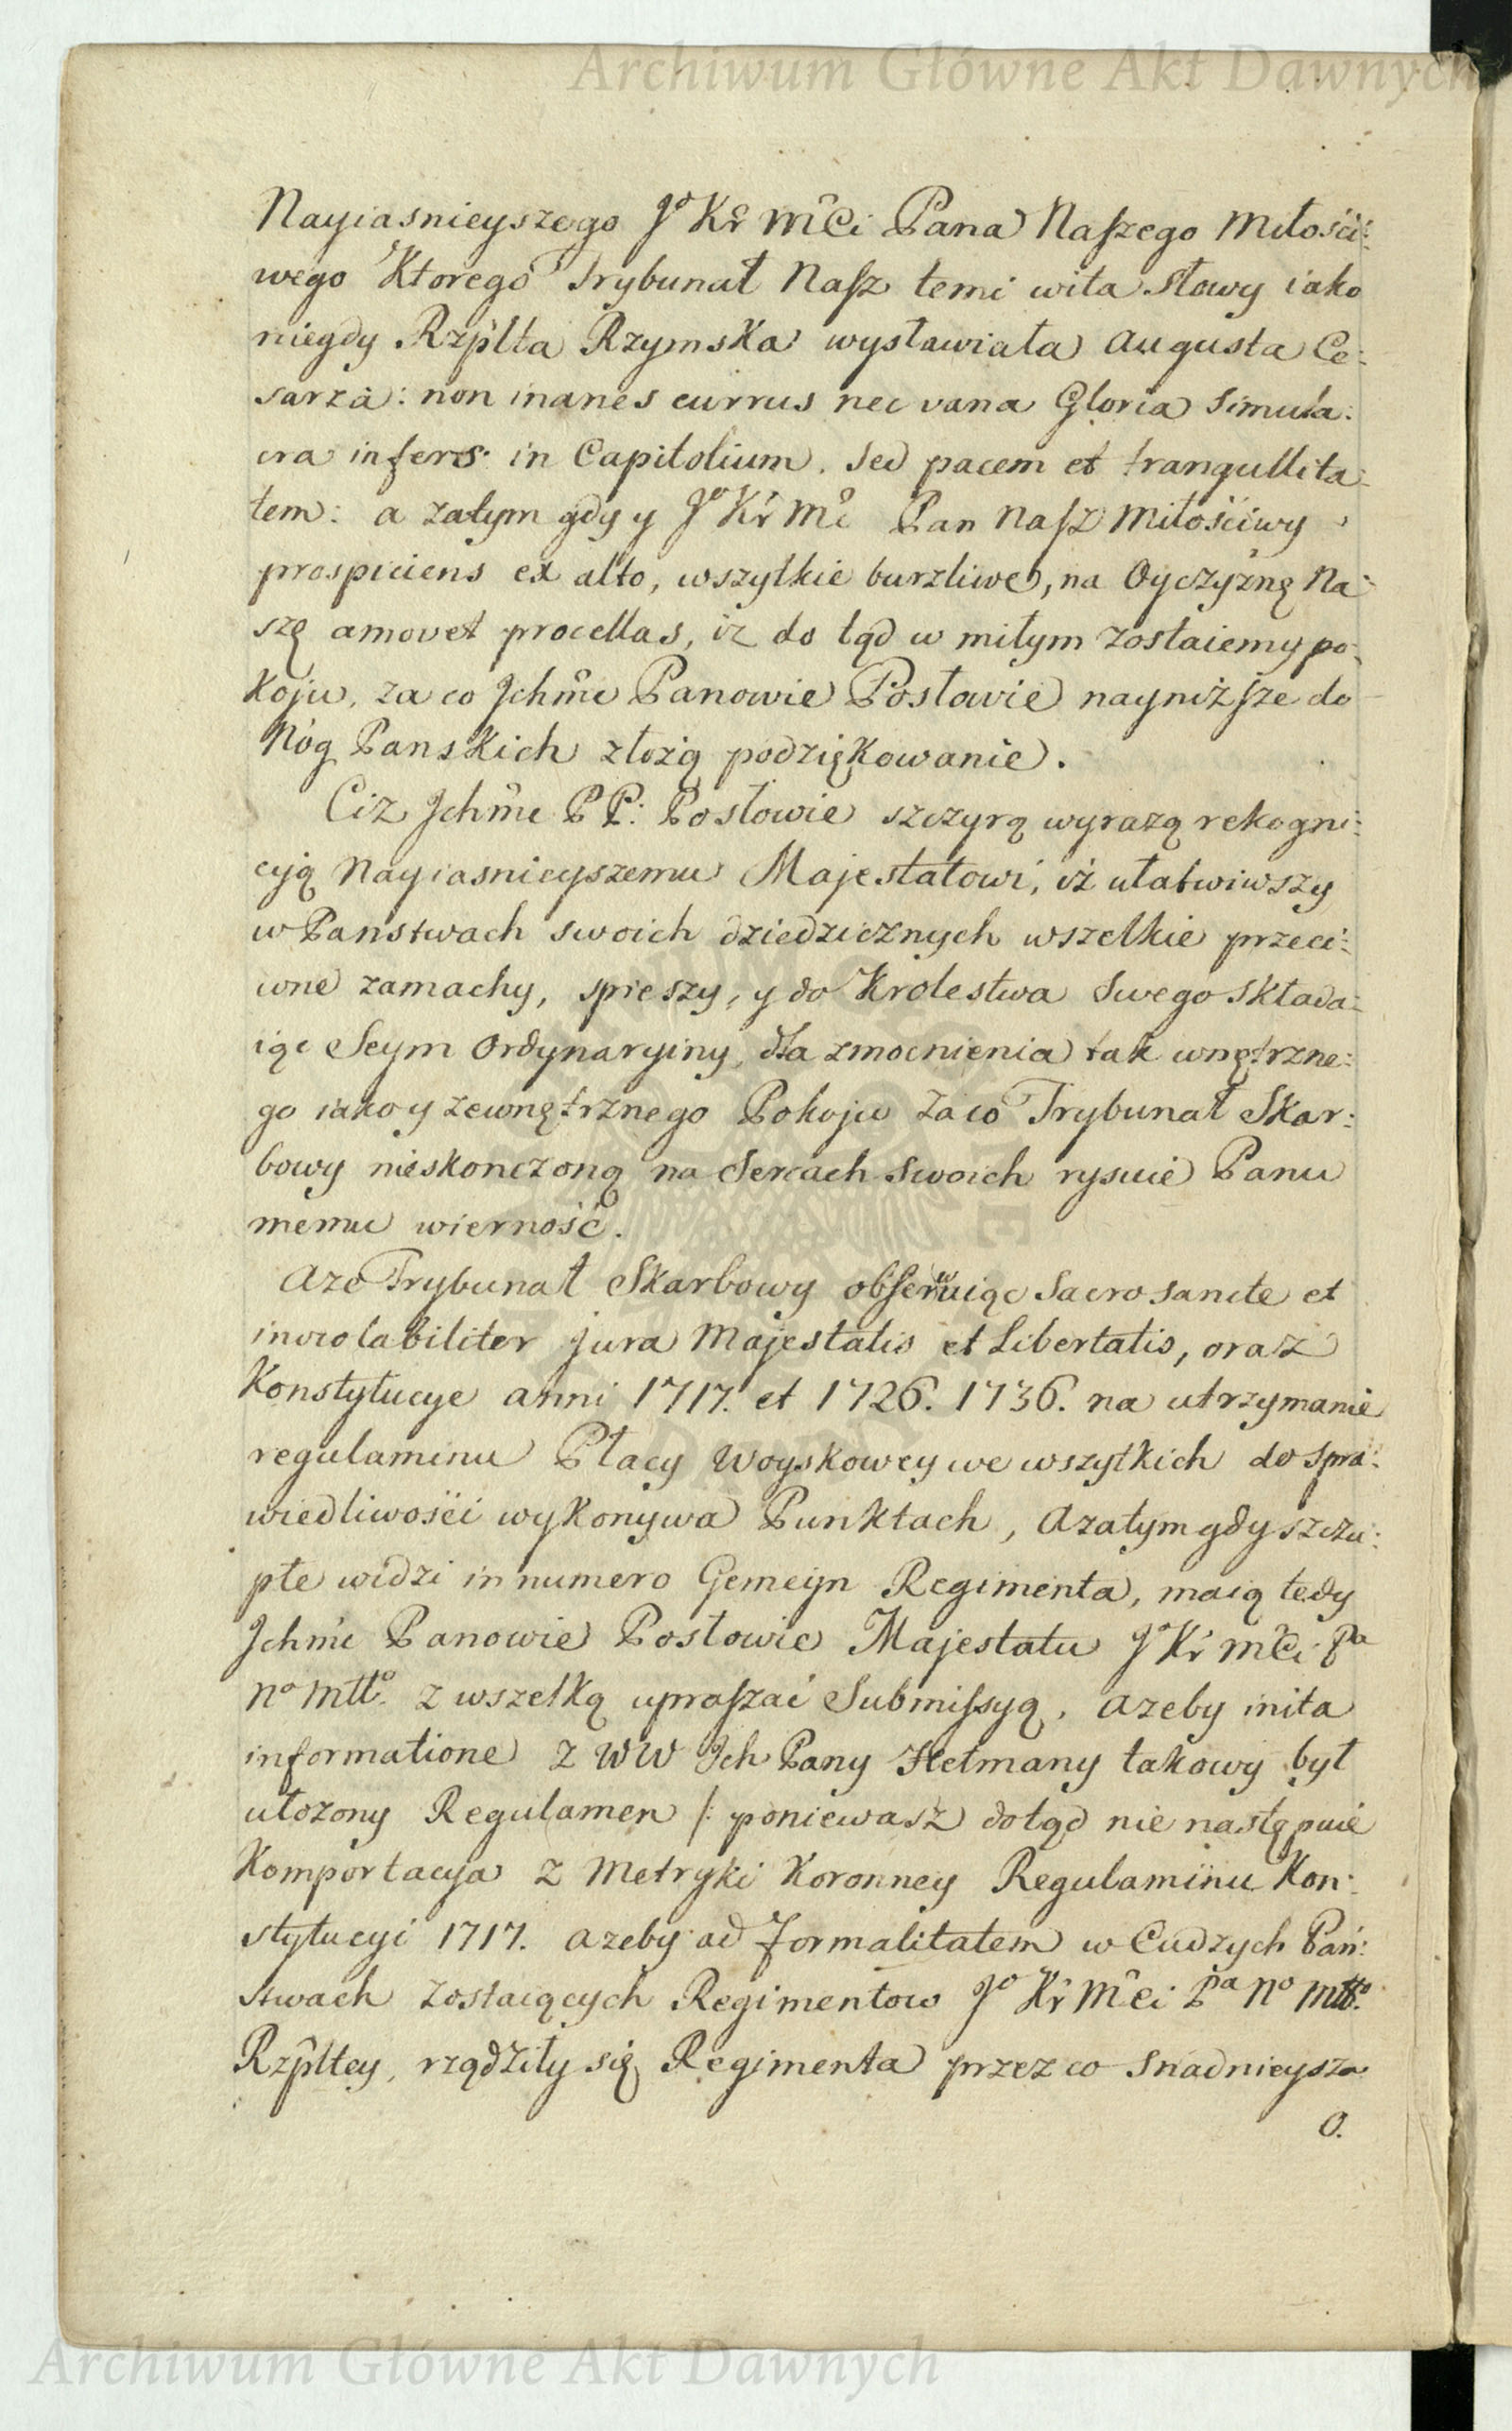 Archiwum Główne Akt Dawnych
Nayiasnieyszego Jº Kr Mci Pana Naszego Miłości:
wego Ktorego Trybunał Nasz temi wita Słowy iako
niegdy Rzplta Rzymska wysławiała Augusta Ce:
sarza: non inanes currus nec vana Gloria Simula:
cra infers in Capitolium. Sed pacem et tranquilita:
tem: a zatym gdy y Jº Kr Mć Pan Nasz Miłościwy
prospiciens ex alto, wszytkie burzliwe, na Oyczyznę Na:
szę amovet procellas, iż do tąd w miłym zostaiemy po:
koju, za co Jchmć Panowie Posłowie nayniższe do
Nóg Panskich złożą podziękowanie.
Ciz Jchmć PP: Posłowie szczyrą wyrazą rekogni:
cyją Nayiasnieyszemu Majestatowi, iż ułatwiwszy
w Panstwach swoich dziedzicznych wszelkie przeci:
wne zamachy, spieszy, y do Krolestwa Swego Składa:
iąc Seym Ordynaryiny, dla zmocnienia tak wnętrzne:
go iako y zewnętrznego Pokoju za co Trybunał Skar:
bowy nieskonczoną na Sercach Swoich rysuie Panu
memu wierność.
Aze Trybunał Skarbowy obserwuiąc Sacrosancte et
inviolabiliter jura Majestatis et Libertatis, oraz
Konstytucye anni 1717. et 1726. 1736. na utrzymanie
regulaminu Płacy Woyskowey we wszytkich do Spra:
wiedliwości wykonywa Punktach, Azatym gdy szczu:
płe widzi in numero Gemeyn Regimenta, maią tedy
Jchmć Panowie Posłowie Majestatu Jº Kr Mci Pa
Nº Mttº z wszelką upraszać Submissyą, azeby inita
informatione z WW Jch Pany Hetmany takowy był
ułozony Regulamen /: poniewasz dotąd nie następuie
Komportacya z Metryki Koronney Regulaminu Kon:
stytucyi 1717. azeby ad formalitatem w Cudzych Pań:
stwach zostaiących Regimentow Jº Kr Mci Pa Nº Mttº
Rzpltey, rządziły się Regimenta przez co snadnieysza
O.
Archiwum Główne Akt Dawnych